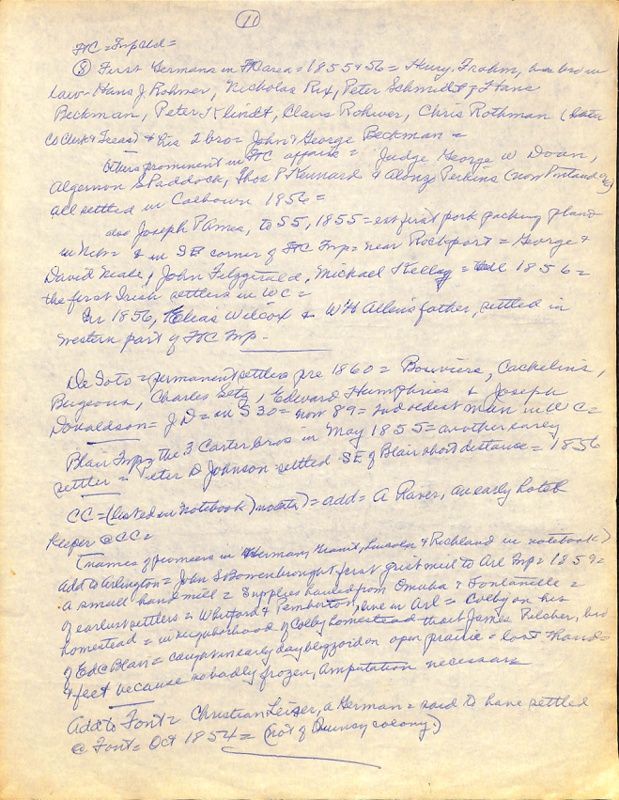 11
FtC = Twp Add =
⑧ First Germans in FtC area = 1855 & 56 = Henry Frahm, his bro in
law = Hans J Rohwer, Nicholas Rix, Peter Schmidt & Hans
Beckman, Peter Klindt, Claus Rohwer, Chris Rothman (later
Co Clerk & Treas) & his 2 bro = John & George Beckman =
Others prominent in FtC affairs = Judge George W Doan,
Algernon S Paddock, Thos P Kennard & Alonzo Perkins (now Portland Ore)
all settled in Calhoun 1856 =
also Joseph P Ames, to S5, 1855 = est first pork packing plant
in Nebr & in SE corner of FtC Twp = near Rockport = George &
David Neale, John Fitzgerald, Michael Kelley = all 1856 =
the first Irish settlers in WC =
In 1856, Elias Wilcox & W H Allens father, settled in
western part of FtC Twp =
De Soto = permanent settlers pre 1860 = Bouviers, Cachelins,
Bugeons, Charles Seltz, Edward Humphries & Joseph
Donaldson = J D = in S 30 = now 89 = 2nd oldest man in WC =
Blair Twp = the 3 Carter bros in May 1855 = another early
settler = Peter D Johnson settled SE of Blair short distance = 1856
CC = (listed in Notebook) = add = A Raver, an early hotel
keeper @ CC =
(names of pioneers in Herman, Grant, Lincoln & Richland in notebook)
Add to Arlington = John S Bowen brought first grist mill to Arl Twp = 1859 =
a small hand mill = Supplies hauled from Omaha & Fontanelle =
of earliest settlers = Whitford & Pemberton, live in Arl = Colby on his
homestead = in neighborhood of Colby homestead that James Pilcher, bro
of Ed C Blair = caught in early day blizzard on open prairie = lost hands
& feet because so badly frozen, amputation necessary
Add to Font = Christian Leiser, a German = said to have settled
@ Font = Oct 1854 = (not of Quincy colony)